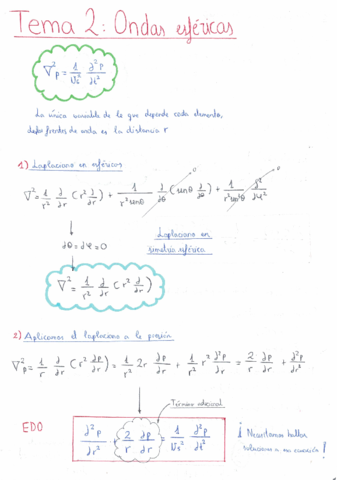 Tema 2: Ondas esféricas
∇²p = 1/Vs² d²p/dt²
La única variable de la que depende cada elemento,
de los frentes de onda es la distancia r
1) Laplaciano en esféricas
∇² = 1/r² d/dr (r² d/dr) + 1/r² senθ d/dθ (senθ d/dθ) + 1/r² sen²θ d²/dφ²
0 0
dθ = dφ = 0
Laplaciano en
simetría esférica
∇² = 1/r² d/dr (r² d/dr)
2) Aplicamos el laplaciano a la presión
∇²p = 1/r d/dr (r² dp/dr) = 1/r² 2r dp/dr + 1/r² r² d²p/dr² = 2/r dp/dr + d²p/dr²
Término adicional
EDO
d²p/dr² + 2/r dp/dr = 1/Vs² d²p/dt²
¡ Necesitamos hallar
soluciones a esa ecuación !